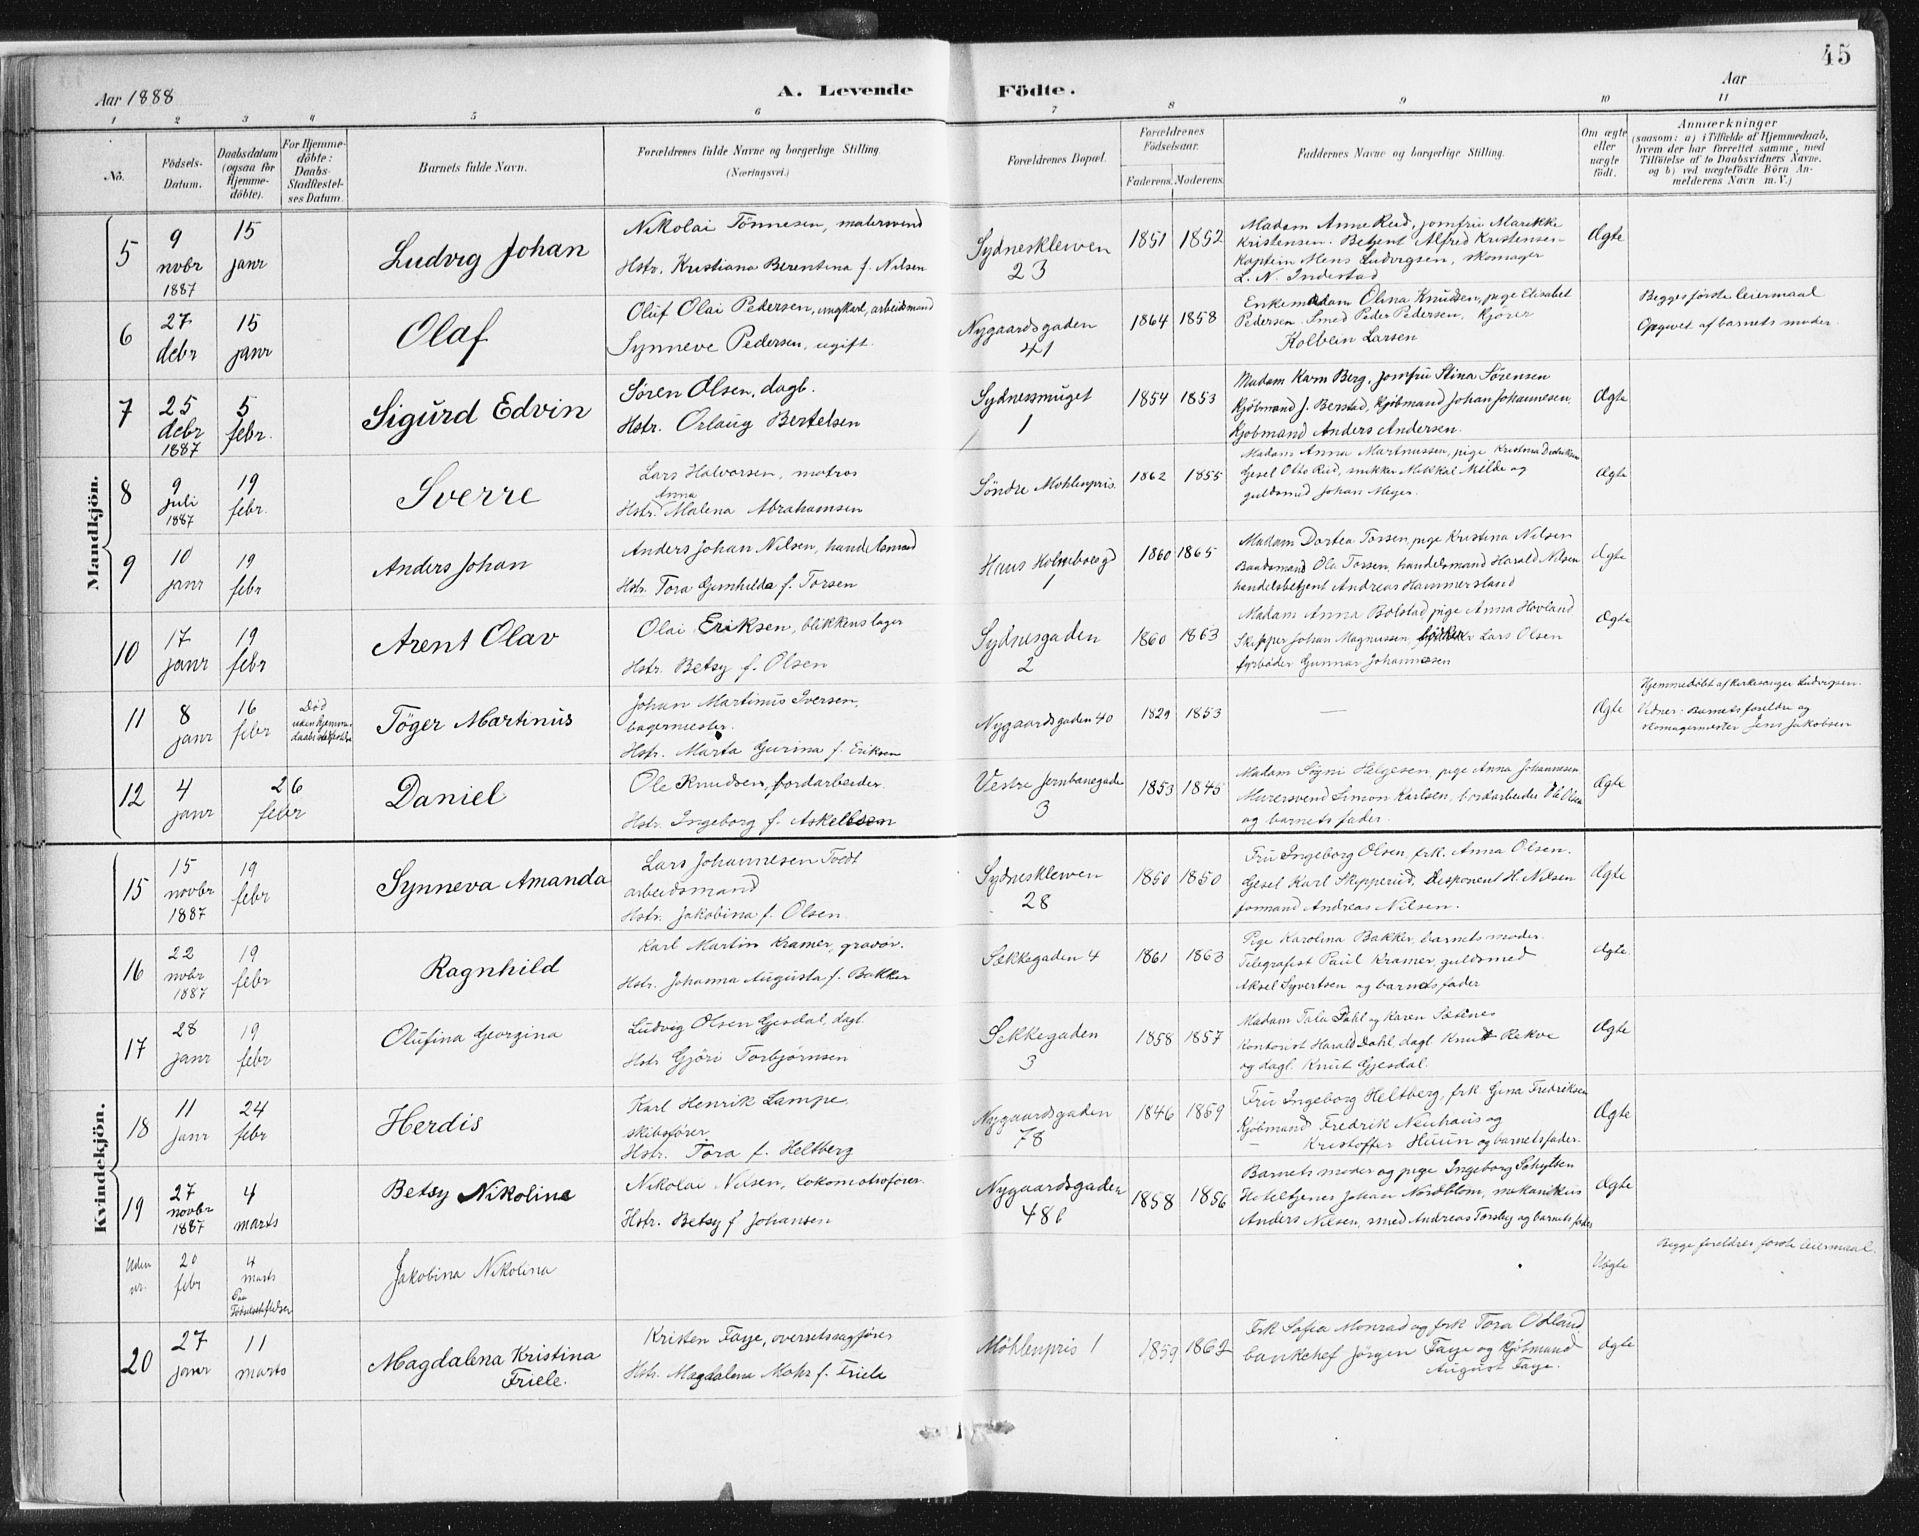 45
Aar 1888
A. Levende
Födte.
Aar
1 2 3 4 5 6 7 8 9 10 11
No.
Födsels-
Datum.
Daabsdatum
(ogsaa for
Hjemme-
döbte).
For Hjemme-
döbte:
Daabs-
Stadfæstel-
ses Datum.
Barnets fulde Navn.
Forældrenes fulde Navne og borgerlige Stilling
(Næringsvei.)
Forældrenes Bopæl.
Forældrenes
Födselsaar.
Faderens. Moderens.
Faddernes Navne og borgerlige Stilling.
Om ægte
eller
uægte
födt.
Anmærkninger
(saasom: a) i Tilfælde af Hjemmedaab,
hvem der har forrettet samme, med
Tilföielse af to Daabsvidners Navne.
og b) ved uægtefödte Börn An-
melderens Navn m.V.)
Mandkjön.
5
9
novbr
1887
15
janr
Ludvig Johan
Nikolai Tönnesen, malersvend
Hstr. Kristiana Berentina f. Nilsen
Sydneskleven
23
1851 1852
Madam Anne Reid, jomfru Marekke
Kristensen. Betjent Alfred Kristensen
Kaptein Mens Ludvigsen, skomager
L. N. Indestad
Ægte
6
27
debr
15
janr
Olaf
Oluf Olai Pedersen, ungkarl, arbeidsmand
Synneve Pedersen, ugift.
Nygaardsgaden
41
1864 1858
Enkemadam Olina Knudsen, pige Elisabet
Pedersen. Smed Peder Pedersen, kjörer
Kolbein Larsen
Begges förste leiermaal
Opgivet af barnets moder.
7
25
debr
1887
5
febr.
Sigurd Edvin
Sören Olsen, dagb.
Hstr. Orlaug Bertelsen
Sydnessmuget
1
1854 1853
Madam Karn Berg, jomfru Stina Sörensen
Kjöbmand J. Berstad, kjöbmand Johan Johannesen.
Kjöbmand Anders Andersen.
Ægte
8
9
juli
1887
19
febr.
Sverre
Lars Halvorsen, matros
Anna
Hstr. Malena Abrahamsen
Söndre Möhlenpris.
1862 1855
Madam Anna Martinussen, pige Kristina Dedrikson
Gesel Otto Reid, snikker Mikkal Milde og
guldsmed Johan Meyer.
Ægte
9
10
janr
19
febr
Anders Johan
Anders Johan Nilsen, handelsmand
Hstr. Tora Gunhilda f. Torsen
Hans Holmboesgd
1
1860 1865
Madam Dortea Torsen, pige Kristina Nilsen
Baadsmand Ole Torsen, handelsmand Harald Nilsen
handelsbetjent Andreas Hammersland
Ægte
10
17
janr
19
febr
Arent Olav
Olai Eriksen, blikkenslager
Hstr. Betsy f. Olsen
Sydnesgaden
2
1860 1863
Madam Anna Bolstad, pige Anna Hovland
Skipper Johan Magnussen, Lars Olsen
fyrböder Gunnar Johannessen
Ægte
11
8
janr
16
febr
Död
uden hjemme-
daabs stadfæstelse
Töger Martinus
Johan Martinus Iversen,
bagermester.
Hstr. Marta Gurina f. Eriksen
Nygaardsgaden 40
1829 1853
—
Ægte
Hjemmedöbt af kirkesanger Ludvigsen.
Vidner: Barnets foreldre og
skomagermester Jens Jakobsen
12
4
janr
26
febr
Daniel
Ole Knudsen, bordarbeider
Hstr. Ingeborg f. Askelsen
Vestre Jernbanegade
3
1853 1845
Madam Signi Helgesen, pige Anna Johannesen
Murersvend Simon Karlsen, bordarbeider Ole Olsen
og barnets fader.
Ægte
Kvindekjön.
15
15
novbr
1887
19
febr
Synneva Amanda
Lars Johannesen Toedt
arbeidsmand
Hstr. Jakobina f. Olsen
Sydneskleven
28
1850 1850
Fru Ingeborg Olsen, frk. Anna Olsen.
Gesel Karl Skipperud, disponent H. Nilsen
formand Andreas Nilsen.
Ægte
16
22
nvbr
1887
19
febr
Ragnhild
Karl Martin Kramer, gravör.
Hstr. Johanna Augusta f. Bakker
Sækkegaden 4
1861 1863
Pige Karolina Bakker, barnets moder.
Telegrafist Paul Kramer, guldsmed
Aksel Syvertsen og barnets fader
Ægte
17
28
janr
19
febr
Olufina Georgina
Ludvig Olsen Gjesdal, dagl.
Hstr Gjöri Torbjörnsen
Sekkegaden
3
1858 1857
Madam Tala Dahl og Karen Sætnes
Kontorist Harald Dahl, dagl. Knut Rekve
og dagl. Knut Gjesdal.
Ægte
18
11
janr
24
febr
Herdis
Karl Henrik Lampe,
skibsförer
Hstr. Tora f. Heltberg
Nygaardsgaden
78
1846 1859
Fru Ingeborg Heltberg, frk Gina Fredriksen
Kjöbmand Fredrik Neuhaus og
Kristoffer Huun og barnets fader.
Ægte
19
27
novbr
1887
4
marts
Betsy Nikoline
Nikolai Nilsen, lokomotivförer.
Hstr. Betsy f Johansen
Nygaardsgaden
48 b
1858 1856
Barnets moder og pige Ingeborg Schultsen
Hoteltjener Johan Nordblom, mekanikus
Anders Nilsen, smed Andreas Torsby og barnets fader
Ægte
Uden
nr.
20
febr
4
marts
Paa
Födselsstiftelsen
Jakobina Nikolina
Uægte
Begge foreldres förste leiermaal.
20
27
janr
11
marts
Magdalena Kristina
Friele.
Kristen Faye, overretssagförer
Hstr. Magdalena Mohr f. Friele
Möhlenpris 1
1859 1862
Frk Sofia Monrad og frk Tora Odland
bankchef Jörgen Faye og kjöbmand
August Faye.
Ægte